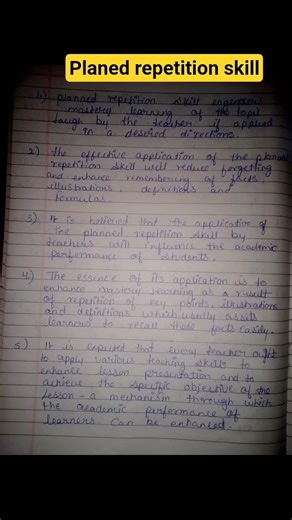 Planed repetition skill
1.) planned repetition skill engenders
mastery learning of the topic
taugh by the teacher if applied
in a desired directions.
2) The effective application of the planned
repetition skill will reduce forgetting
and enhance remembering of facts,
illustrations, definitions and
formulas.
3.) It is believed that the application of
the planned repetition skill by
teachers will influence the academic
performance of students.
4.) The essence of its application is to
enhance mastery learning as a result
of repetition of key points, illustrations
and definitions which usually assits
learners to recall those facts easily.
5) It is expected that every teacher ought
to apply various teaching skills to
enhance lesson presentation and to
achieve the specific objective of the
lesson - a mechanism through which
the academic performance of
learners can be enhanced.